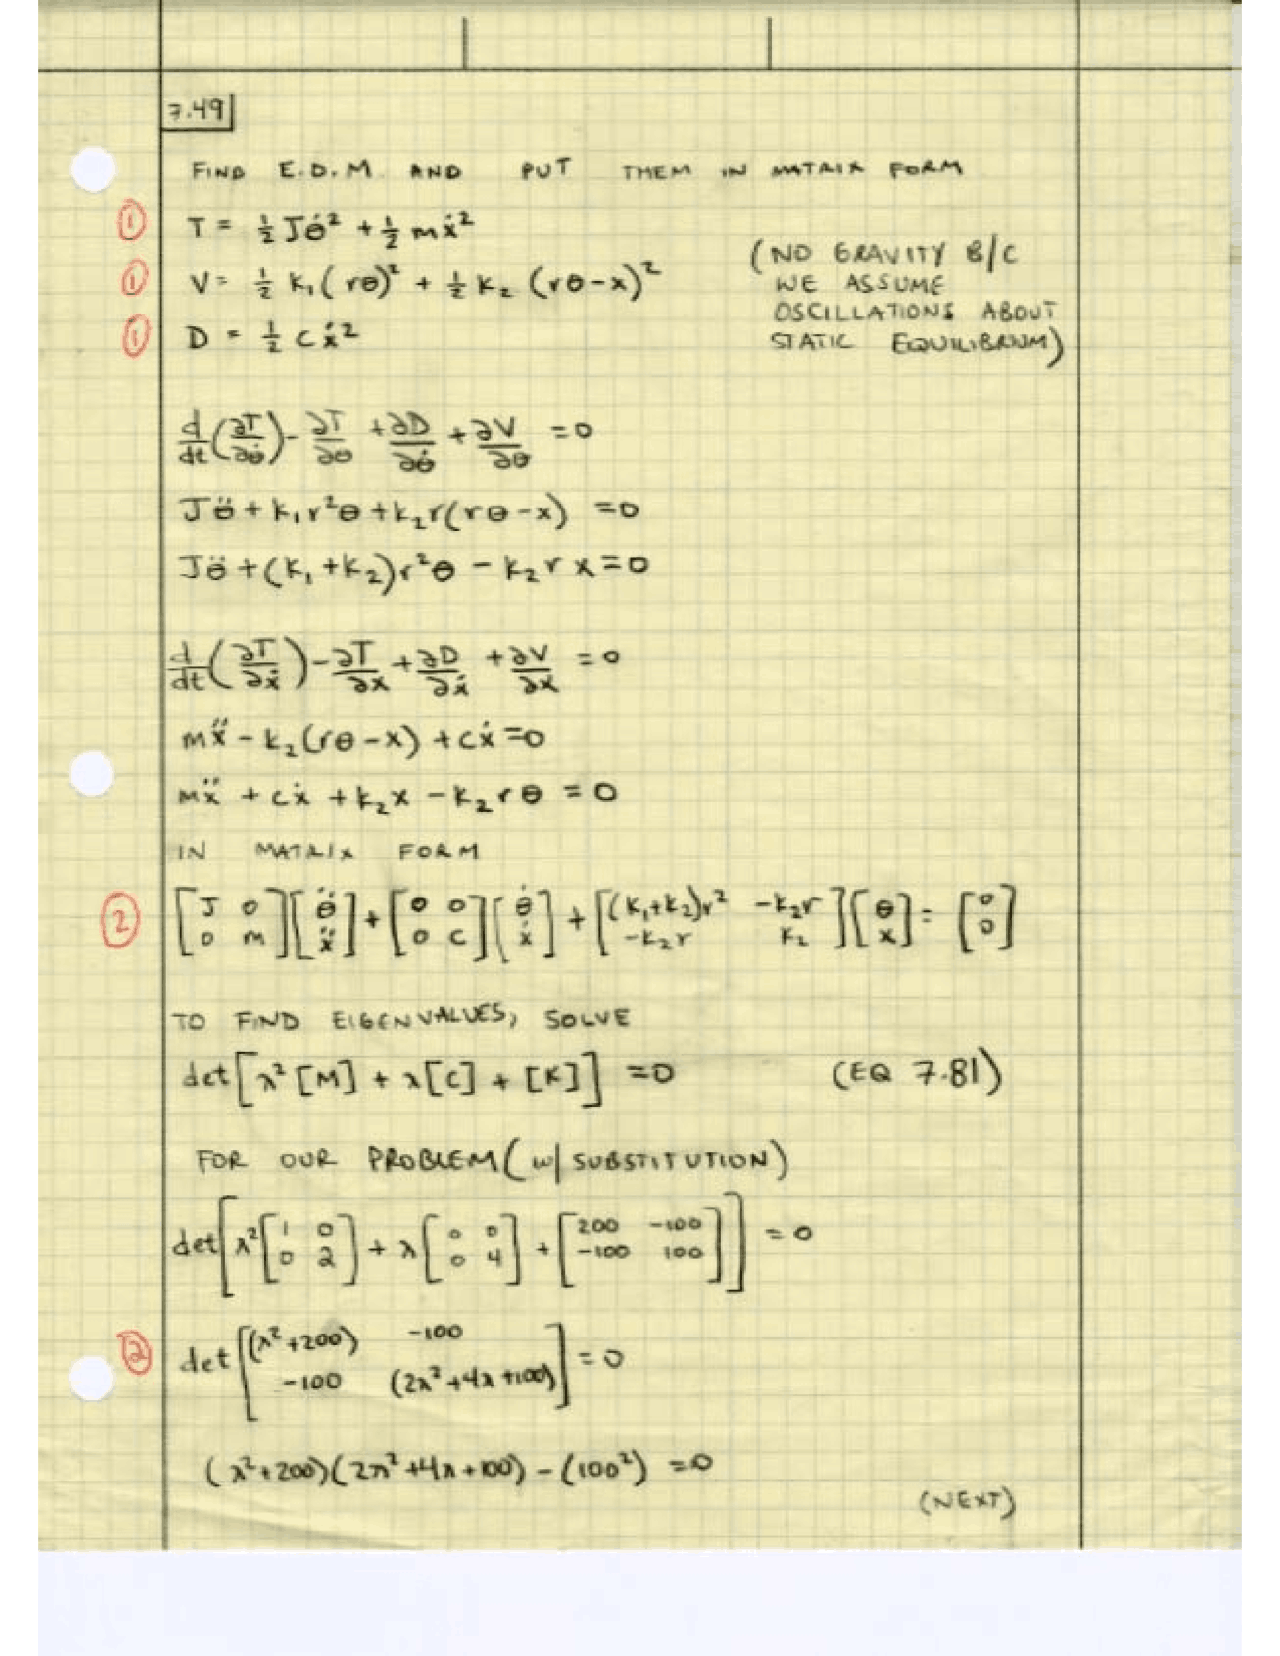 7.49
FIND E.D.M. AND PUT THEM IN MATRIX FORM
① T = ½ Jθ̇² + ½ mẋ²
① V = ½ k₁(rθ)² + ½ k₂ (rθ-x)²
① D = ½ cẋ²
(NO GRAVITY B/C
WE ASSUME
OSCILLATIONS ABOUT
STATIC EQUILIBRIUM)
d/dt(∂T/∂θ̇) - ∂T/∂θ + ∂D/∂θ̇ + ∂V/∂θ = 0
Jθ̈ + k₁r²θ + k₂r(rθ-x) = 0
Jθ̈ + (k₁ + k₂)r²θ - k₂rx = 0
d/dt(∂T/∂ẋ) - ∂T/∂x + ∂D/∂ẋ + ∂V/∂x = 0
mẍ - k₂(rθ-x) + cẋ = 0
mẍ + cẋ + k₂x - k₂rθ = 0
IN MATRIX FORM
② [J 0; 0 m][θ̈; ẍ] + [0 0; 0 c][θ̇; ẋ] + [(k₁+k₂)r² -k₂r; -k₂r k₂][θ; x] = [0; 0]
TO FIND EIGENVALUES, SOLVE
det[λ²[M] + λ[C] + [K]] = 0 (EQ 7.81)
FOR OUR PROBLEM (W/ SUBSTITUTION)
det[λ²[1 0; 0 2] + λ[0 0; 0 4] + [200 -100; -100 100]] = 0
② det[(λ²+200) -100; -100 (2λ²+4λ+100)] = 0
(λ²+200)(2λ²+4λ+100) - (100²) = 0
(NEXT)